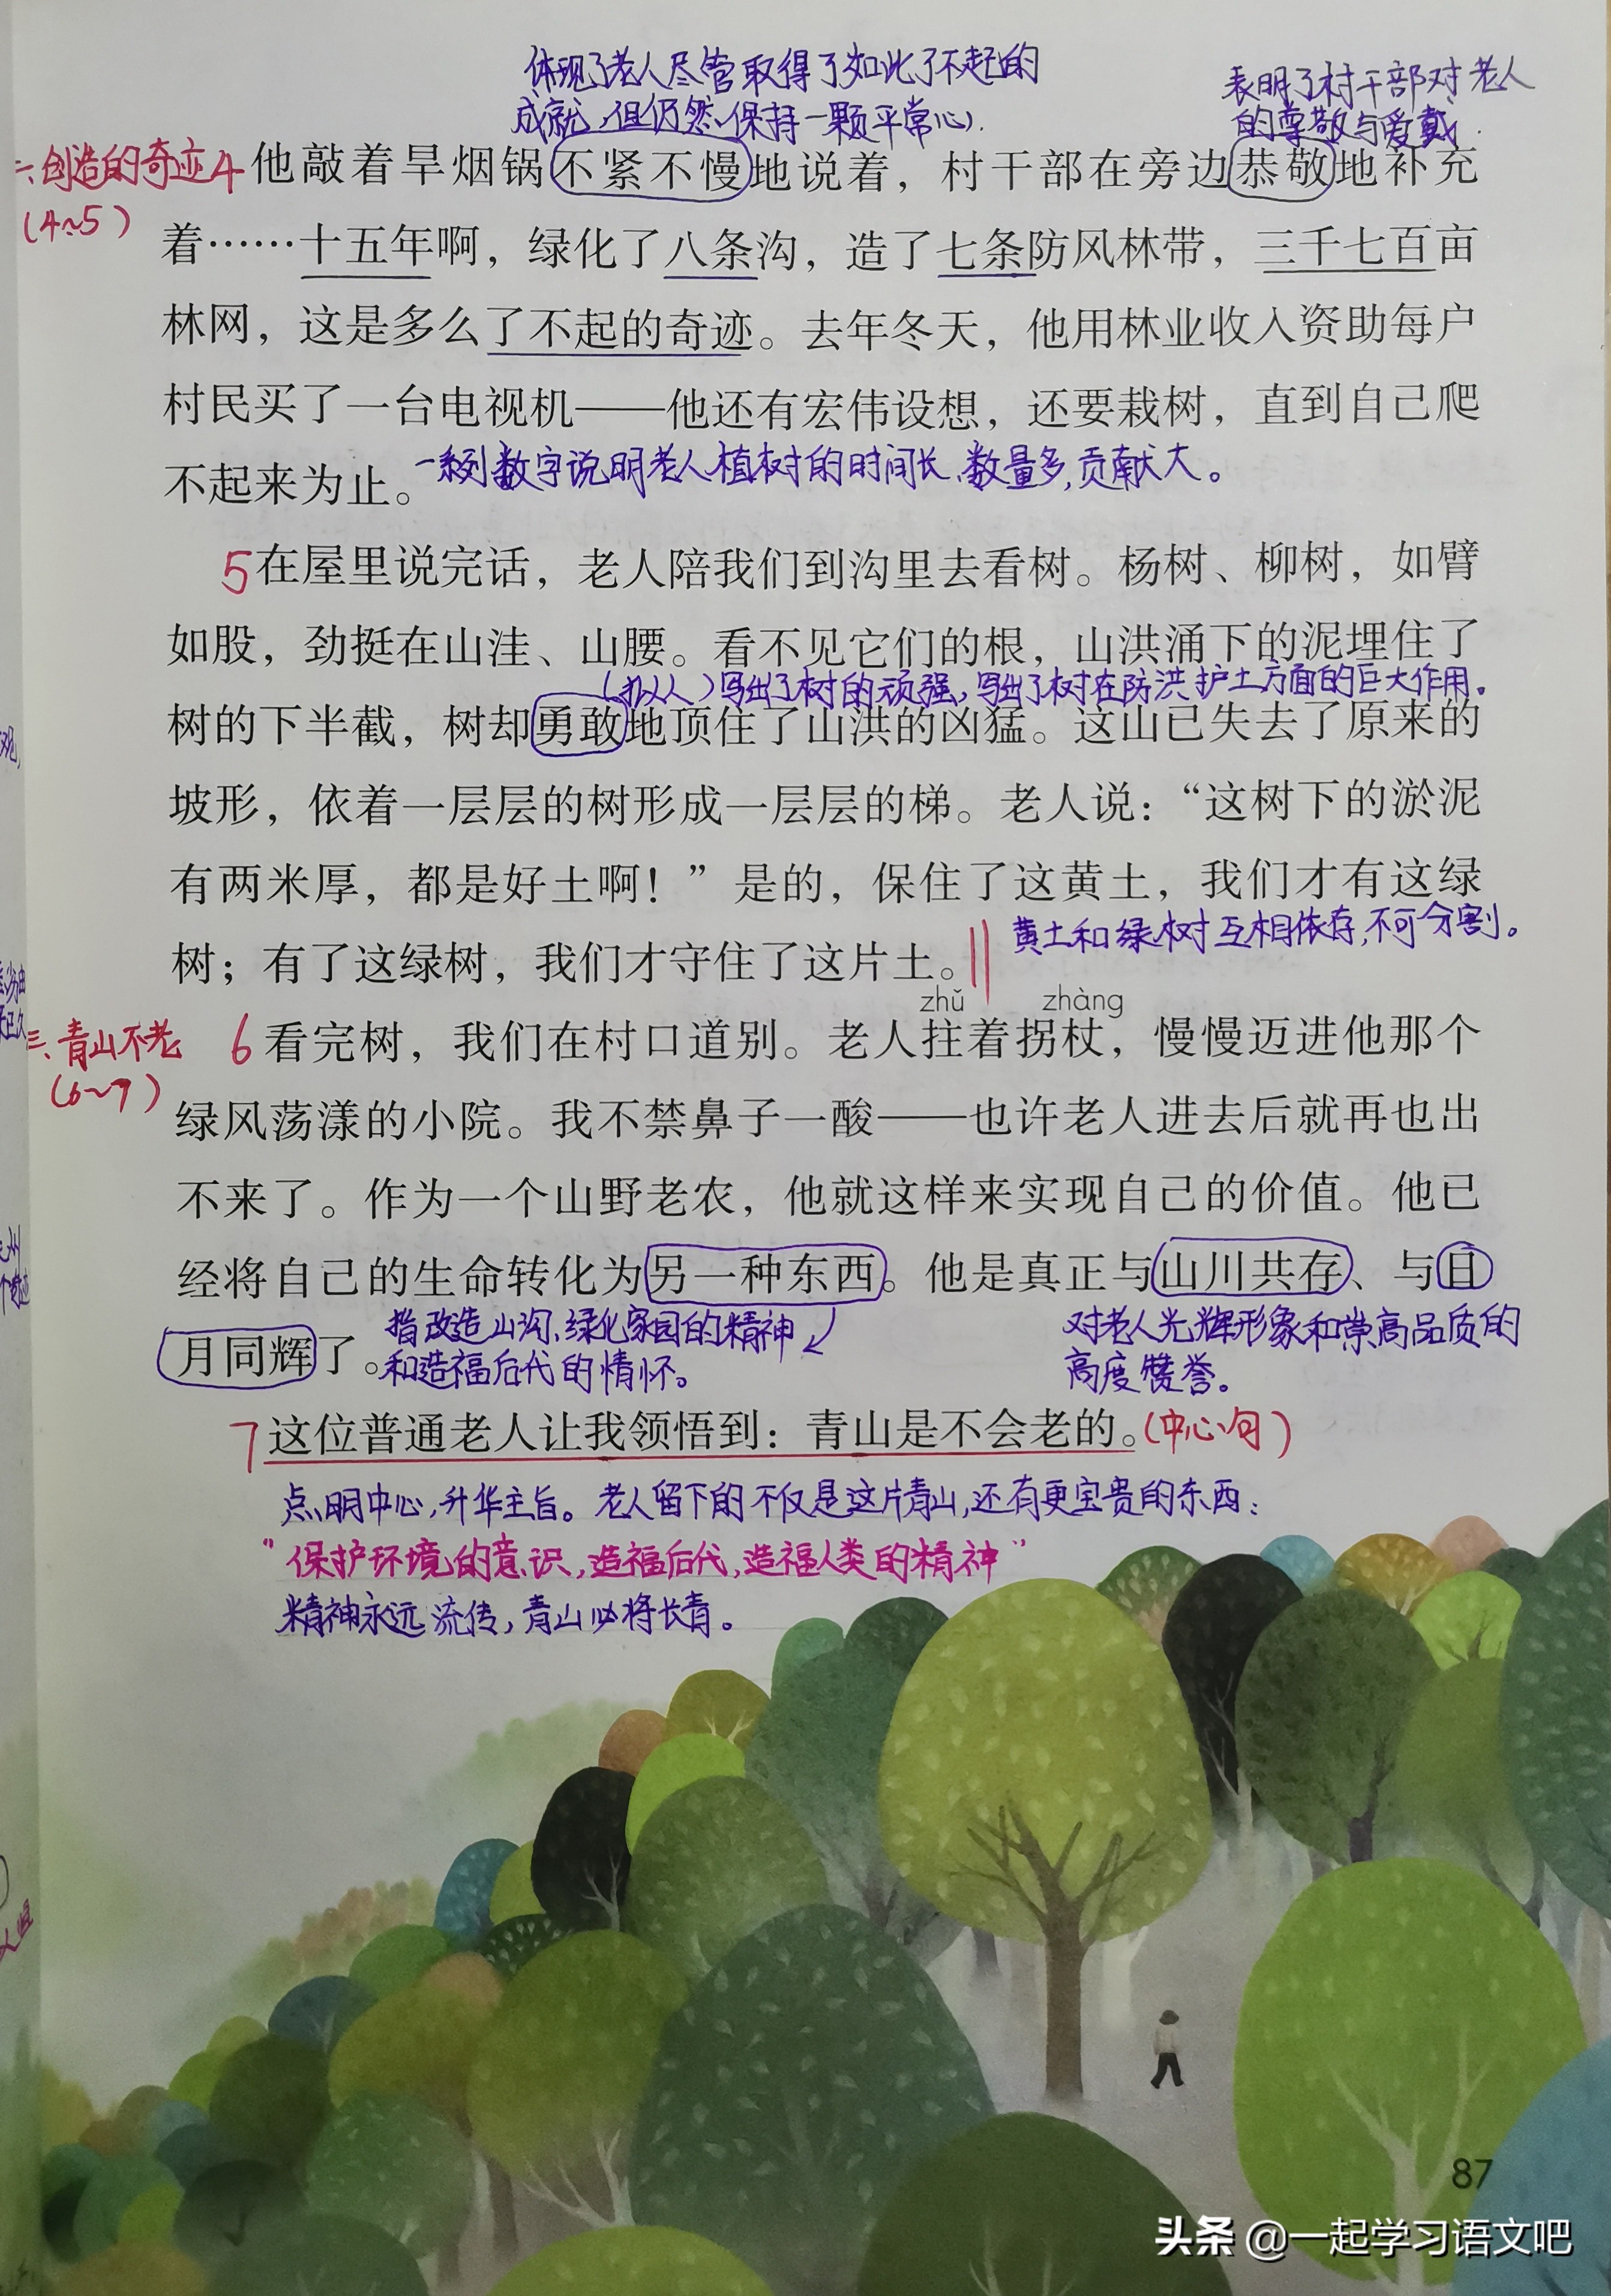 体现了老人尽管取得了如此了不起的
成就,但仍然保持一颗平常心.
表明了村干部对老人
的尊敬与爱戴.
二、创造的奇迹
(4~5)
4他敲着旱烟锅不紧不慢地说着，村干部在旁边恭敬地补充
着……十五年啊，绿化了八条沟，造了七条防风林带，三千七百亩
林网，这是多么了不起的奇迹。去年冬天，他用林业收入资助每户
村民买了一台电视机——他还有宏伟设想，还要栽树，直到自己爬
不起来为止。
一系列数字说明老人植树的时间长,数量多,贡献大。
5在屋里说完话，老人陪我们到沟里去看树。杨树、柳树，如臂
如股，劲挺在山洼、山腰。看不见它们的根，山洪涌下的泥埋住了
(拟人)写出了树的顽强,写出了树在防洪护土方面的巨大作用.
树的下半截，树却勇敢地顶住了山洪的凶猛。这山已失去了原来的
坡形，依着一层层的树形成一层层的梯。老人说：“这树下的淤泥
有两米厚，都是好土啊！”是的，保住了这黄土，我们才有这绿
树；有了这绿树，我们才守住了这片土。
黄土和绿树互相依存,不可分割。
zhǔ zhàng
三、青山不老
(6~7)
6看完树，我们在村口道别。老人拄着拐杖，慢慢迈进他那个
绿风荡漾的小院。我不禁鼻子一酸——也许老人进去后就再也出
不来了。作为一个山野老农，他就这样来实现自己的价值。他已
经将自己的生命转化为另一种东西。他是真正与山川共存、与日
月同辉了。
指改造山沟、绿化家园的精神
和造福后代的情怀。
对老人光辉形象和崇高品质的
高度赞誉。
7这位普通老人让我领悟到：青山是不会老的。(中心句)
点明中心,升华主旨。老人留下的不仅是这片青山,还有更宝贵的东西:
"保护环境的意识,造福后代,造福人类的精神"
精神永远流传,青山必将长青。
87
头条 @一起学习语文吧